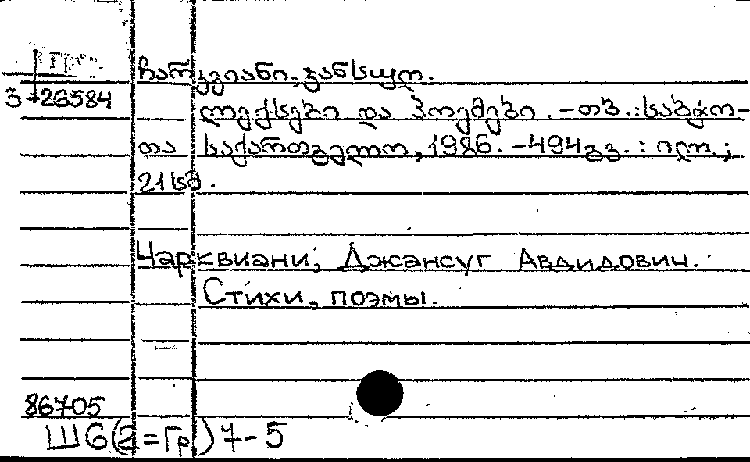 ჩარკვიანი, ჯანსუღ.
3-26584
ლექსები და პოემები. - თბ.: საბჭო-
თა საქართველო, 1986. - 494 გვ. : ილ. ;
21 სმ.
Чарквиани, Джансуг Авдидович.
Стихи, поэмы.
86705
Ш6(2=Гр)7-5